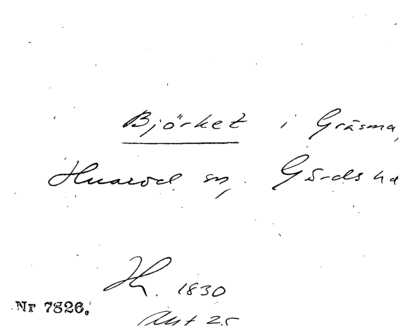 Björket i Gräsma,
Huaröd sn, Gärds ha
H. 1830
Nr 7826.